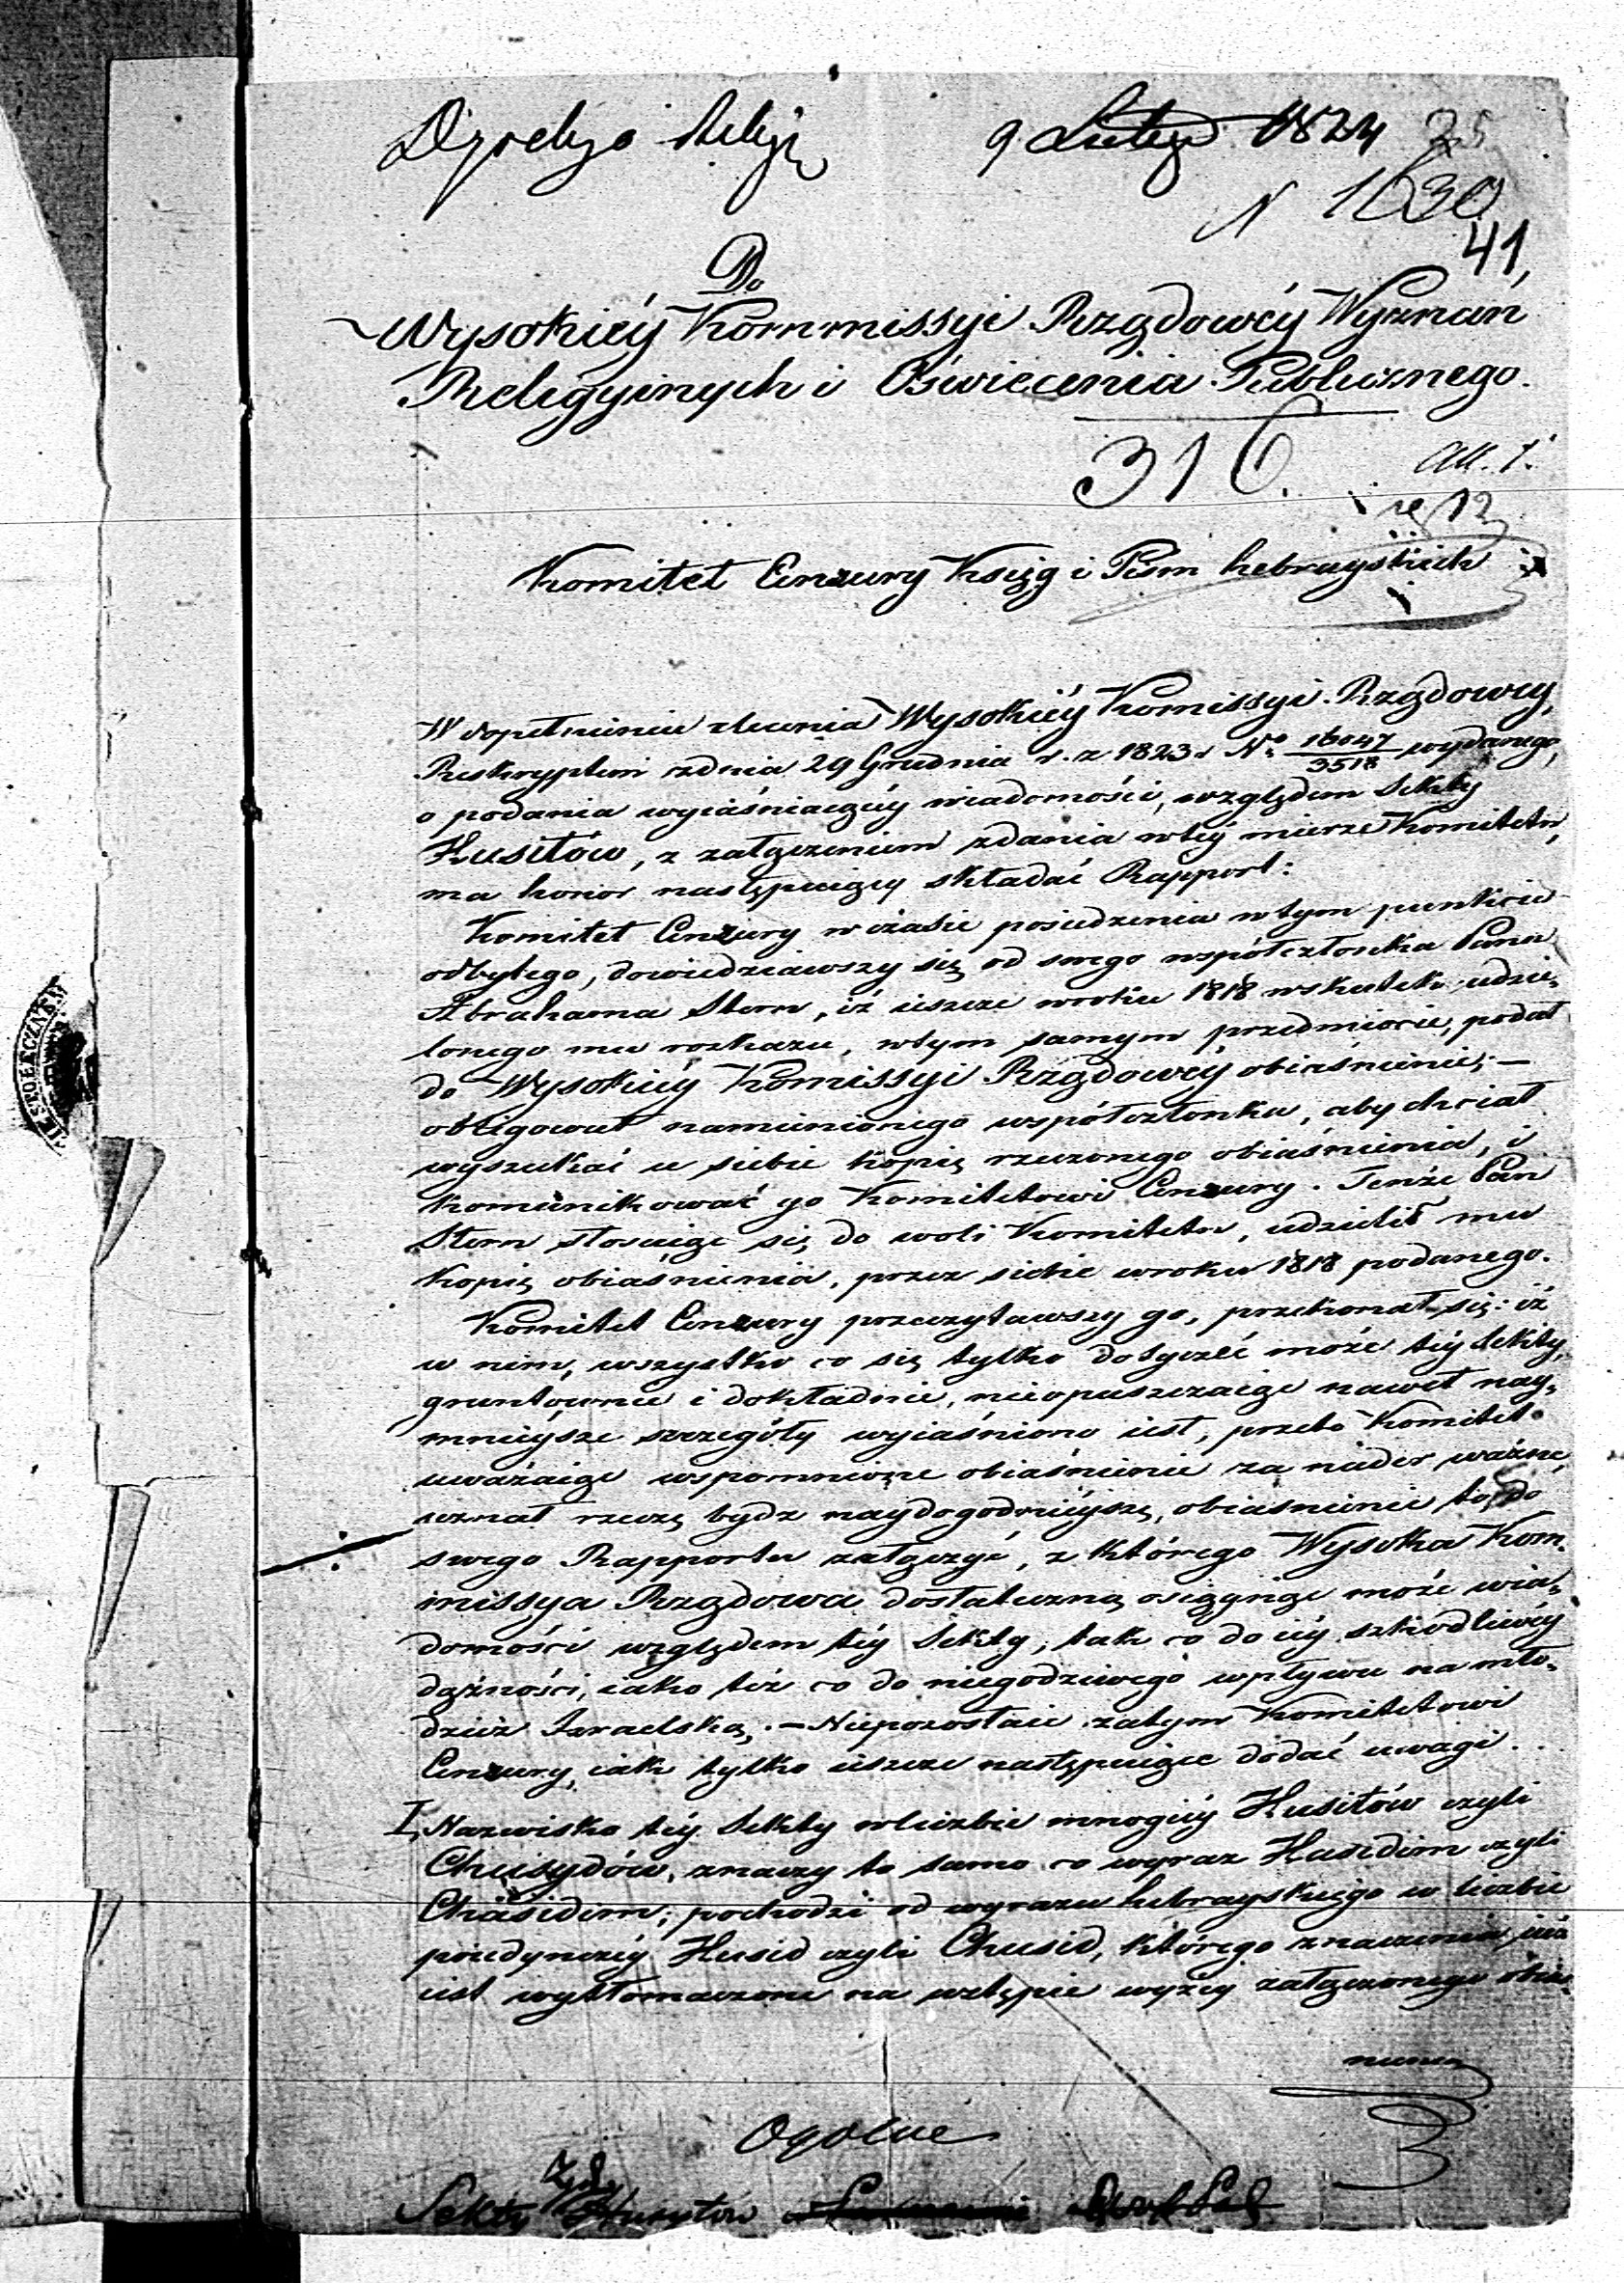 9 Lutego 1824
25
N 1630
41,
Do
Wysokiéy Kommissyi Rządowéy Wyznań
Religyinych i Oświecenia Publicznego.
316.
Komitet Cenzury Ksiąg i Pism hebrayskich
W dopełnieniu zlecenia Wysokiéy Komissyi Rządowey,
Reskryptem z dnia 29 Grudnia r. z 1823 r No 16047/3518 wydanego,
o podania wyiaśniaiącéy wiadomości, względem Sekty
Husitów, z załączeniem zdania w téy mierze Komitetu,
ma honor następuiący składać Rapport:
Komitet Cenzury w czasie posiedzenia w tym punkcie
odbytego, dowiedziawszy się od swego współczłonka Pana
Abrahama Stern, iż ieszcze w roku 1818 w skutek udzie-
lonego mu rozkazu, w tym samym przedmiocie, podał
do Wysokiéy Komissyi Rządowéy obiaśnienie; —
obligował namienionego współczłonka, aby chciał
wyszukać u siebie kopię rzeczonego obiaśnienia, i
komunikować go Komitetowi Cenzury. Tenże Pan
Stern stosuiąc się do woli Komitetu, udzielił mu
kopię obiaśnienia, przez siebie w roku 1818 podanego.
Komitet Cenzury przeczytawszy go, przekonał się: iż
w nim, wszystko co się tylko dotyczéć może téy Sekty,
gruntownie i dokładnie, nieopuszczaiąc nawet nay-
mnieysze szczegóły wyiaśniono iest, przeto Komitet
uważaiąc wspomnione obiaśnienie za nader ważne,
uznał rzeczą bydz naydogodnieyszą, obiasnienie to, do
swego Rapportu załączyć, z którego Wysoka Kom-
missya Rządowa dostateczną osiągnąć może wia-
domości względem téy Sekty, tak co do iéy szkodliwéy
dążności, iako też co do niegodziwego wpływu na mło-
dzież Izraelską. — Niepozostaie zatym Komitetowi
Cenzury, iak tylko ieszcze następuiące dodać uwagi.
I, Nazwisko téy Sekty w liczbie mnogiéy Husitów czyli
Chusydów, znaczy to samo co wyraz Husidim czyli
Chasidim; pochodzi od wyrazu hebrayskiego w liczbie
poiedynczéy Husid czyli Chusid, którego znaczenia iuż
iest wytłomaczone na wstępie wyżéy załączonego obia-
nienia
Ogolne
Sekty Husytów